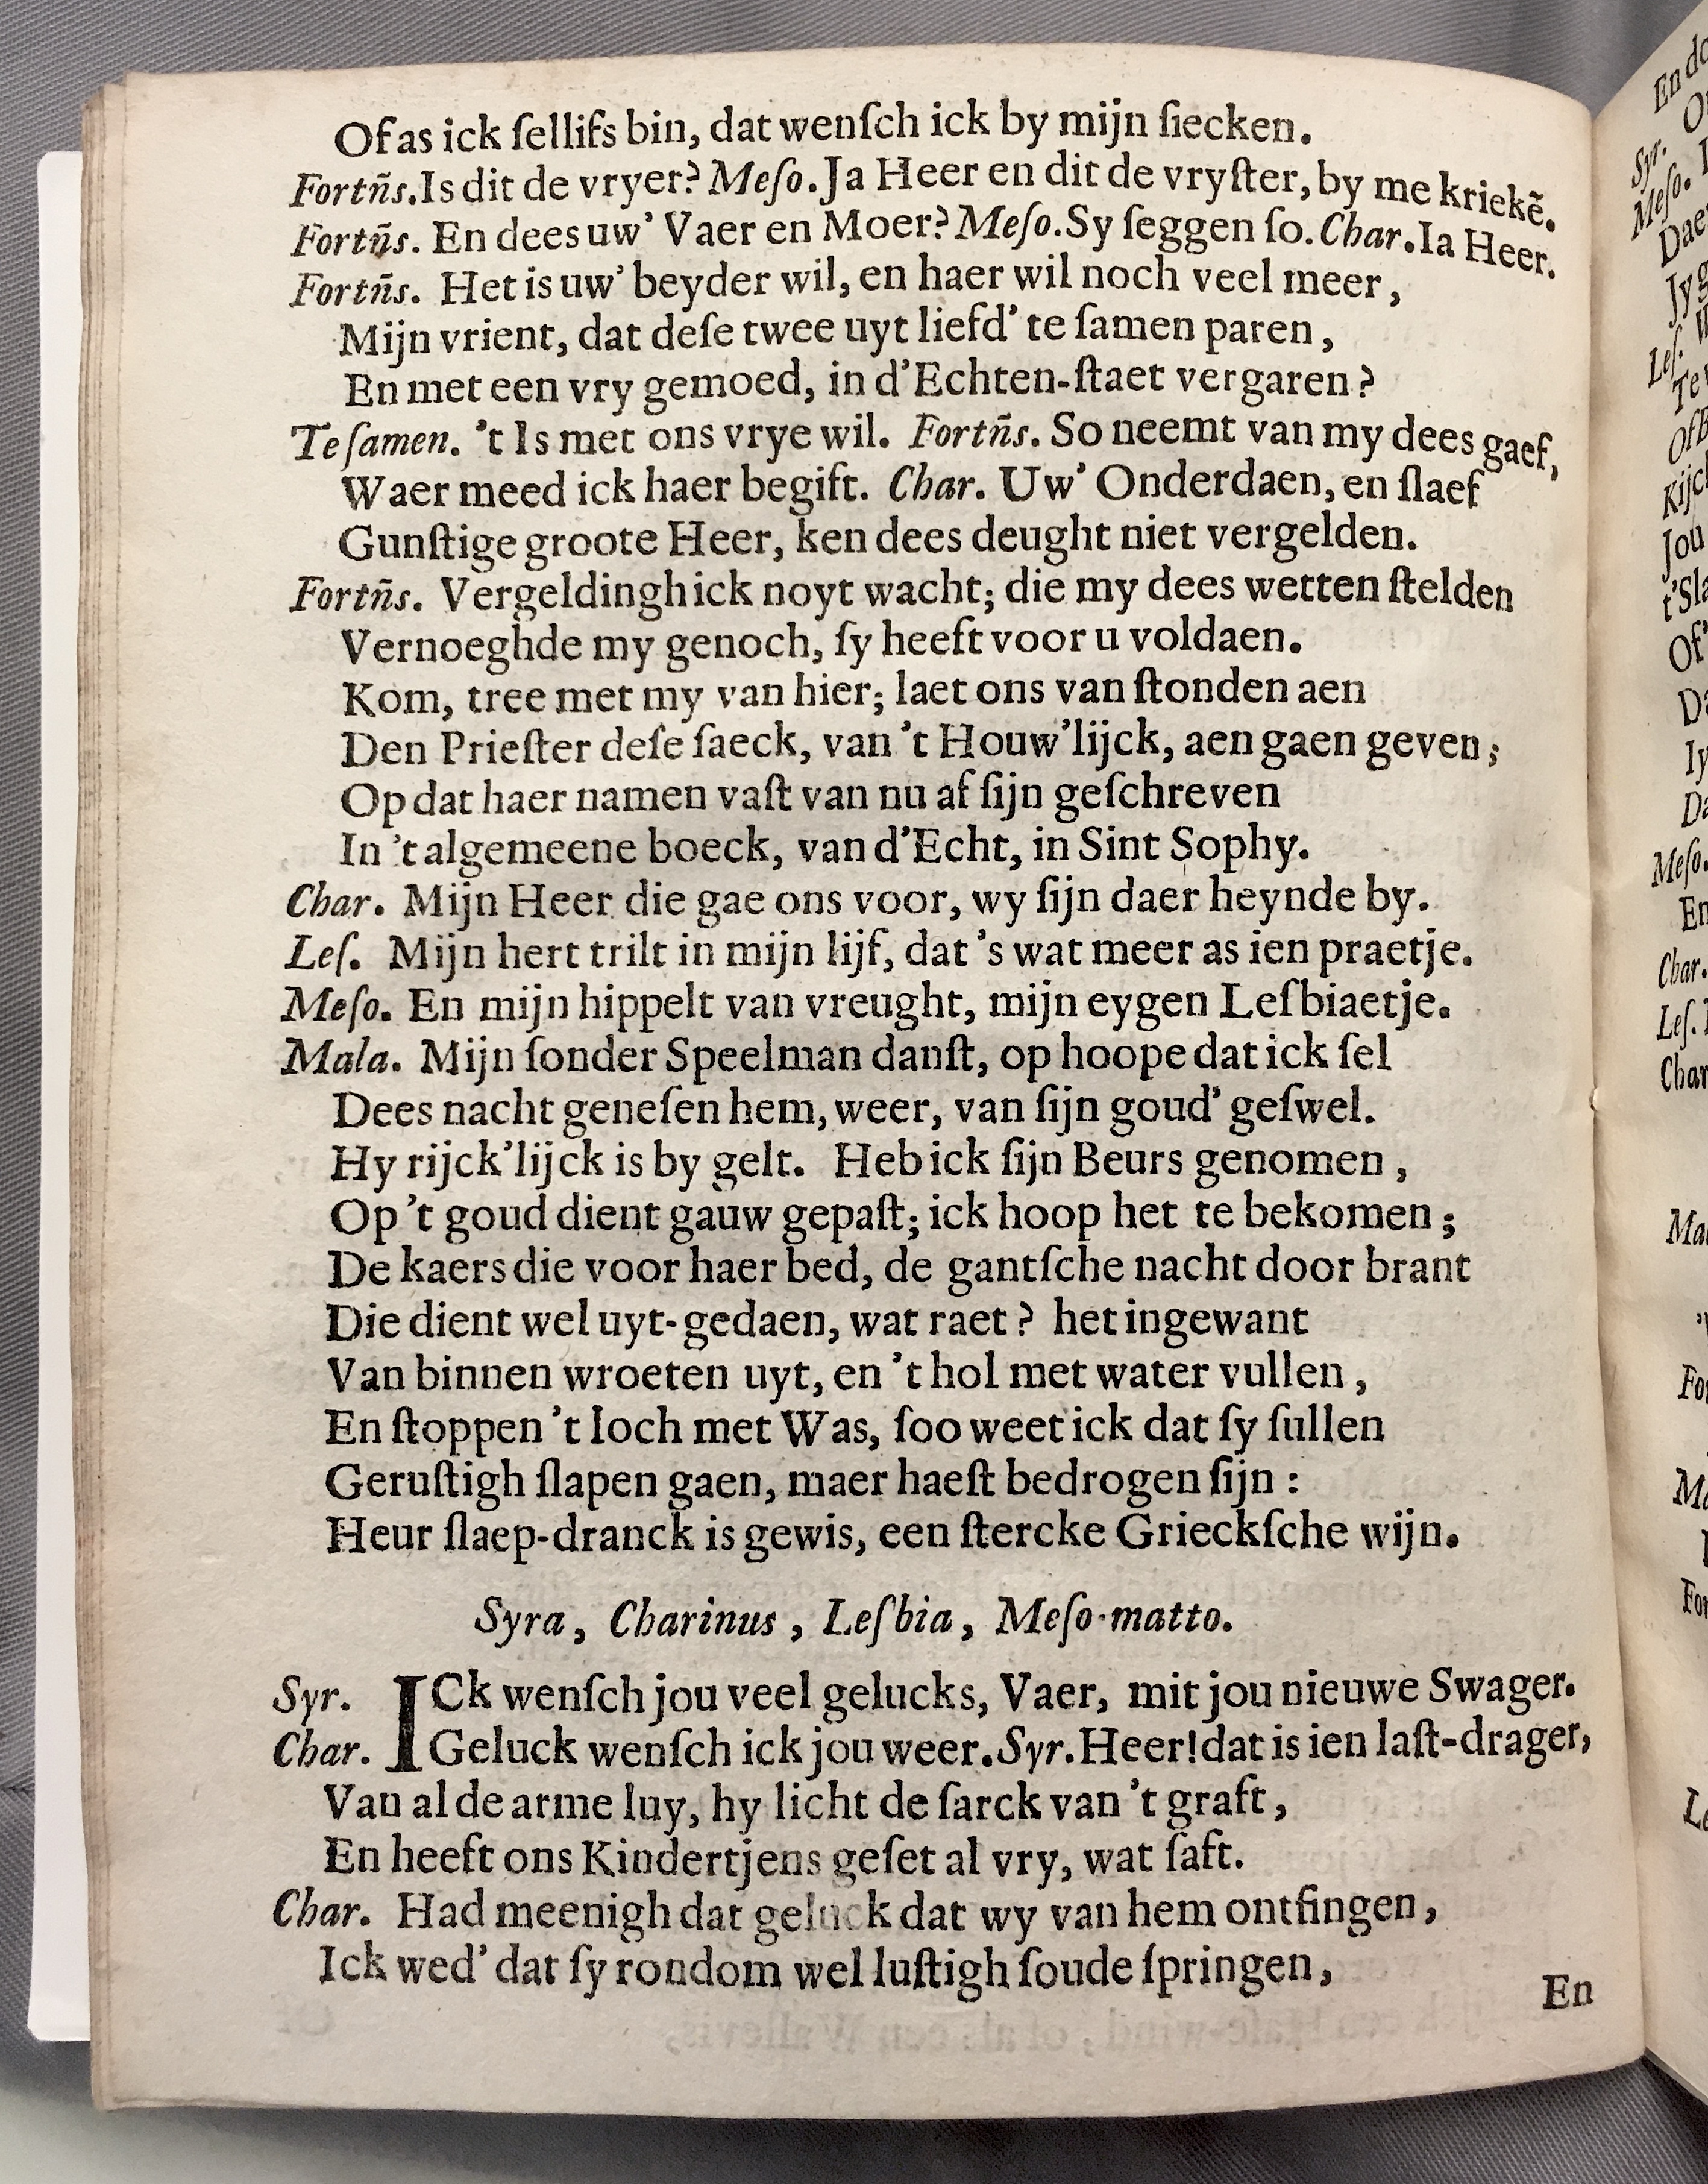 Of as ick ſellifs bin, dat wenſch ick by mijn ſiecken.
Fortñs. Is dit de vryer? Meſo. Ja Heer en dit de vryſter, by me kriekẽ.
Fortñs. En dees uw' Vaer en Moer? Meſo. Sy ſeggen ſo. Char. Ia Heer.
Fortñs. Het is uw' beyder wil, en haer wil noch veel meer,
Mijn vrient, dat deſe twee uyt liefd' te ſamen paren,
En met een vry gemoed, in d'Echten-ſtaet vergaren?
Te ſamen. 't Is met ons vrye wil. Fortñs. So neemt van my dees gaef,
Waer meed ick haer begift. Char. Uw' Onderdaen, en ſlaef
Gunſtige groote Heer, ken dees deught niet vergelden.
Fortñs. Vergeldingh ick noyt wacht; die my dees wetten ſtelden
Vernoeghde my genoch, ſy heeft voor u voldaen.
Kom, tree met my van hier; laet ons van ſtonden aen
Den Prieſter deſe ſaeck, van 't Houw'lijck, aen gaen geven;
Op dat haer namen vaſt van nu af ſijn geſchreven
In 't algemeene boeck, van d'Echt, in Sint Sophy.
Char. Mijn Heer die gae ons voor, wy ſijn daer heynde by.
Leſ. Mijn hert trilt in mijn lijf, dat 's wat meer as ien praetje.
Meſo. En mijn hippelt van vreught, mijn eygen Leſbiaetje.
Mala. Mijn ſonder Speelman danſt, op hoope dat ick ſel
Dees nacht geneſen hem, weer, van ſijn goud' geſwel.
Hy rijck'lijck is by gelt. Heb ick ſijn Beurs genomen,
Op 't goud dient gauw gepaſt; ick hoop het te bekomen;
De kaers die voor haer bed, de gantſche nacht door brant
Die dient wel uyt-gedaen, wat raet? het ingewant
Van binnen wroeten uyt, en 't hol met water vullen,
En ſtoppen 't loch met Was, ſoo weet ick dat ſy ſullen
Geruſtigh ſlapen gaen, maer haeſt bedrogen ſijn:
Heur ſlaep-dranck is gewis, een ſtercke Grieckſche wijn.
Syra, Charinus, Leſbia, Meſo-matto.
Syr. ICk wenſch jou veel gelucks, Vaer, mit jou nieuwe Swager.
Char. Geluck wenſch ick jou weer. Syr. Heer! dat is ien laſt-drager,
Van al de arme luy, hy licht de ſarck van 't graft,
En heeft ons Kindertjens geſet al vry, wat ſaft.
Char. Had meenigh dat geluck dat wy van hem ontfingen,
Ick wed' dat ſy rondom wel luſtigh ſoude ſpringen,
En